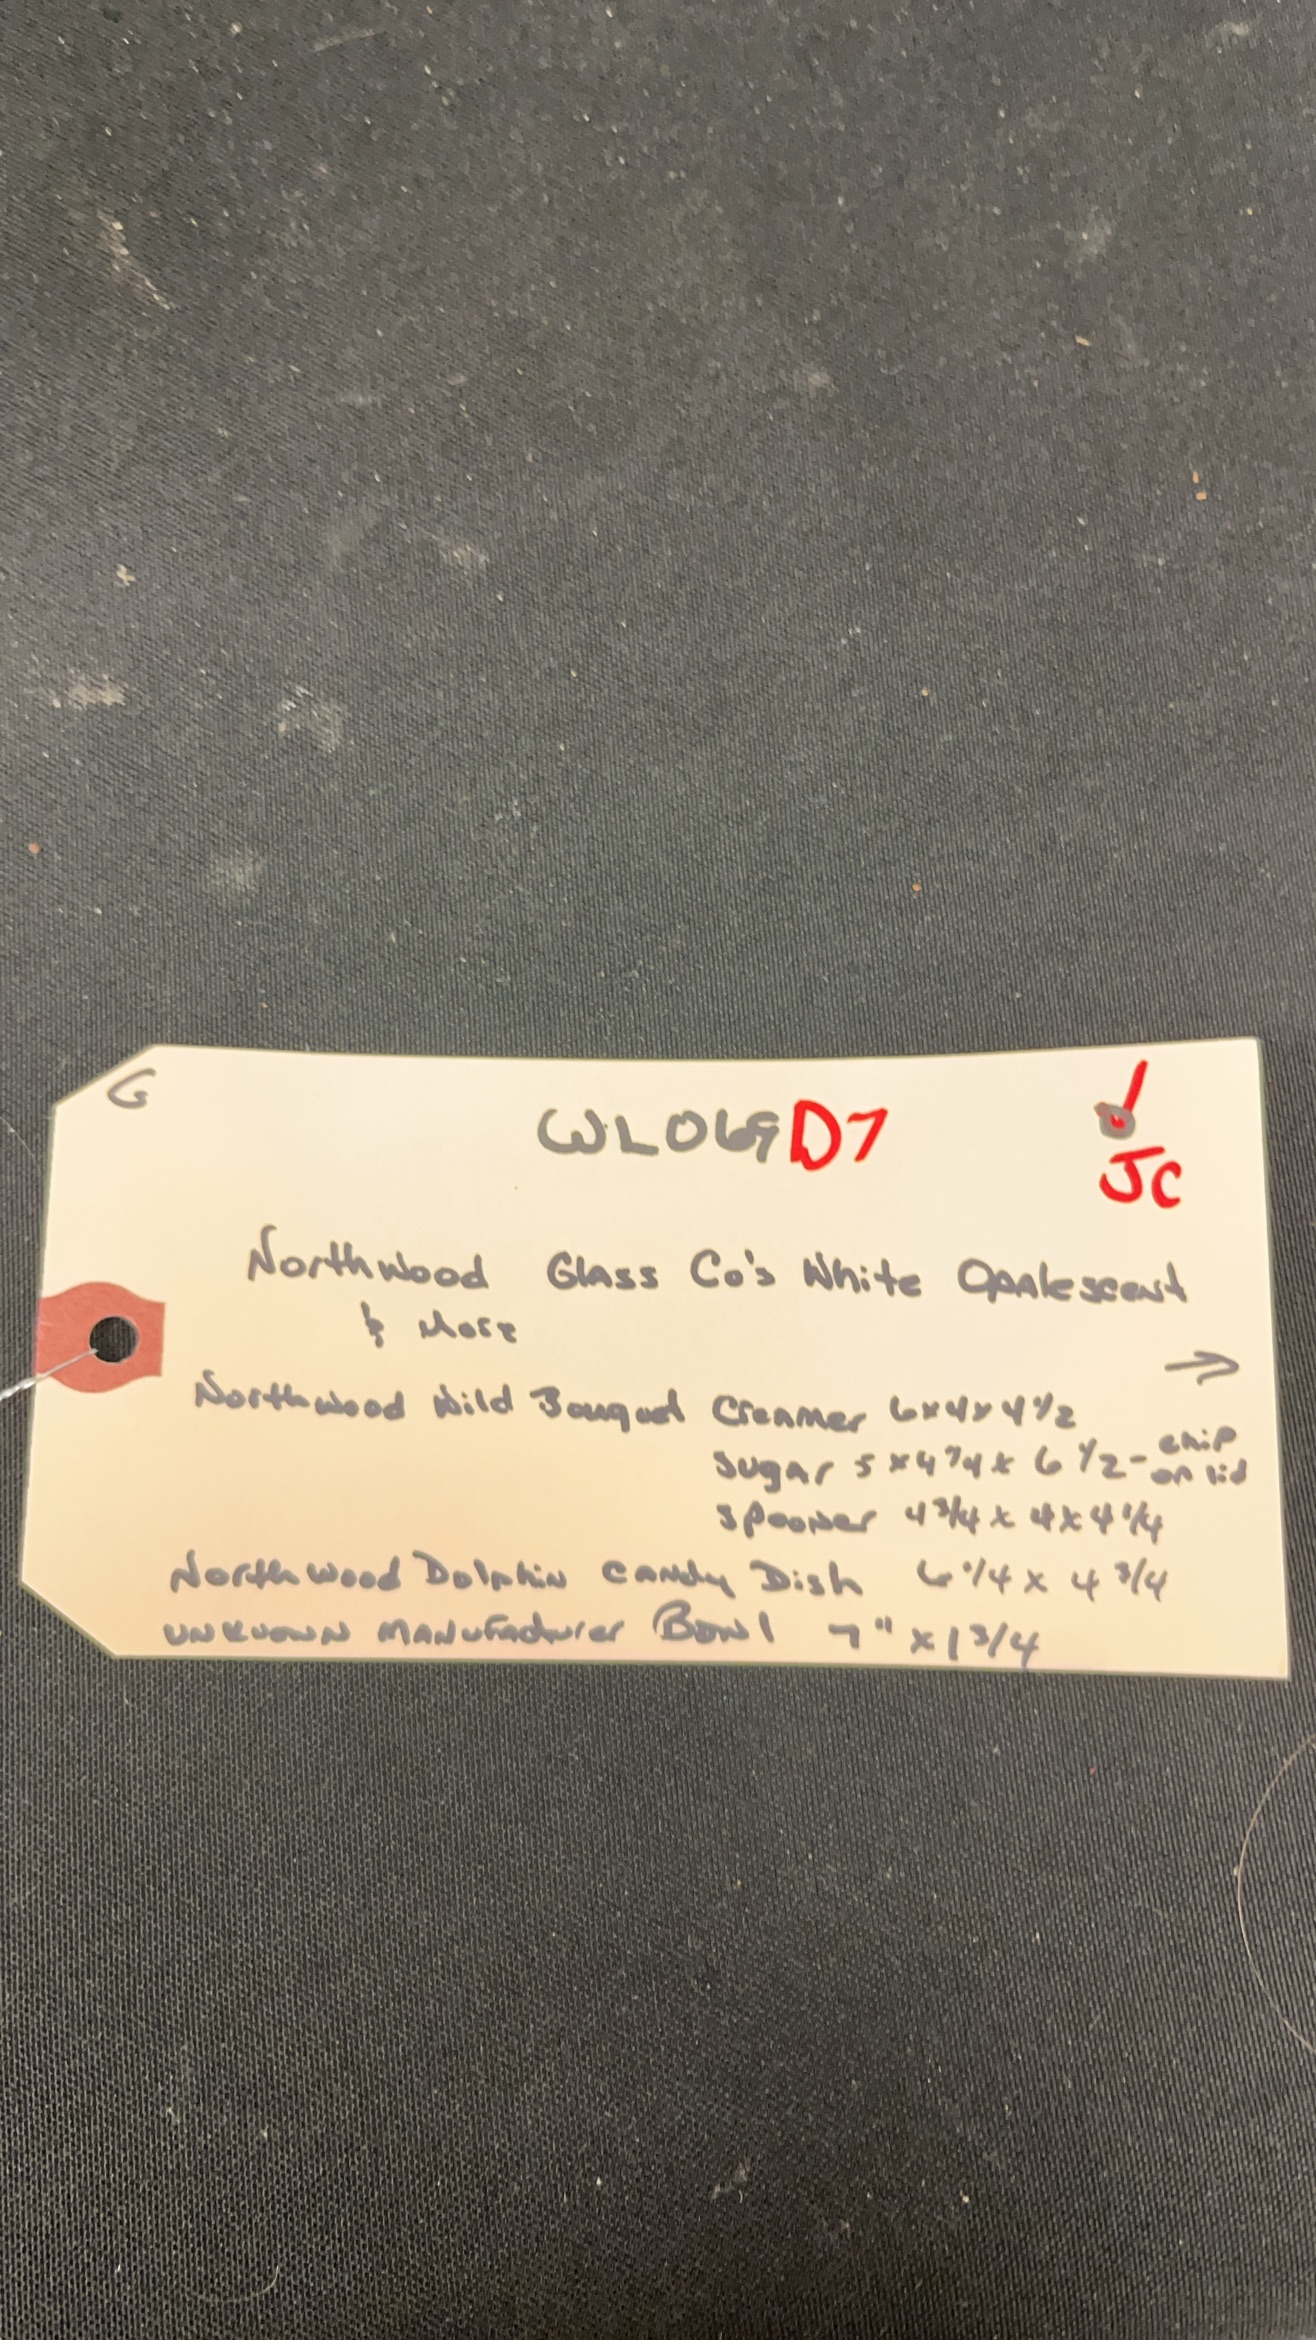 G
WL069D7
JC
Northwood Glass Co's White Opalescent
& More
→
Northwood Wild Bouquet Creamer 6x4x4 1/2
Sugar 5x4 7/4 x 6 1/2 - chip on lid
Spooner 4 3/4 x 4 x 4 1/4
Northwood Dolphin Candy Dish 6 1/4 x 4 3/4
Unknown Manufacturer Bowl 7" x 1 3/4